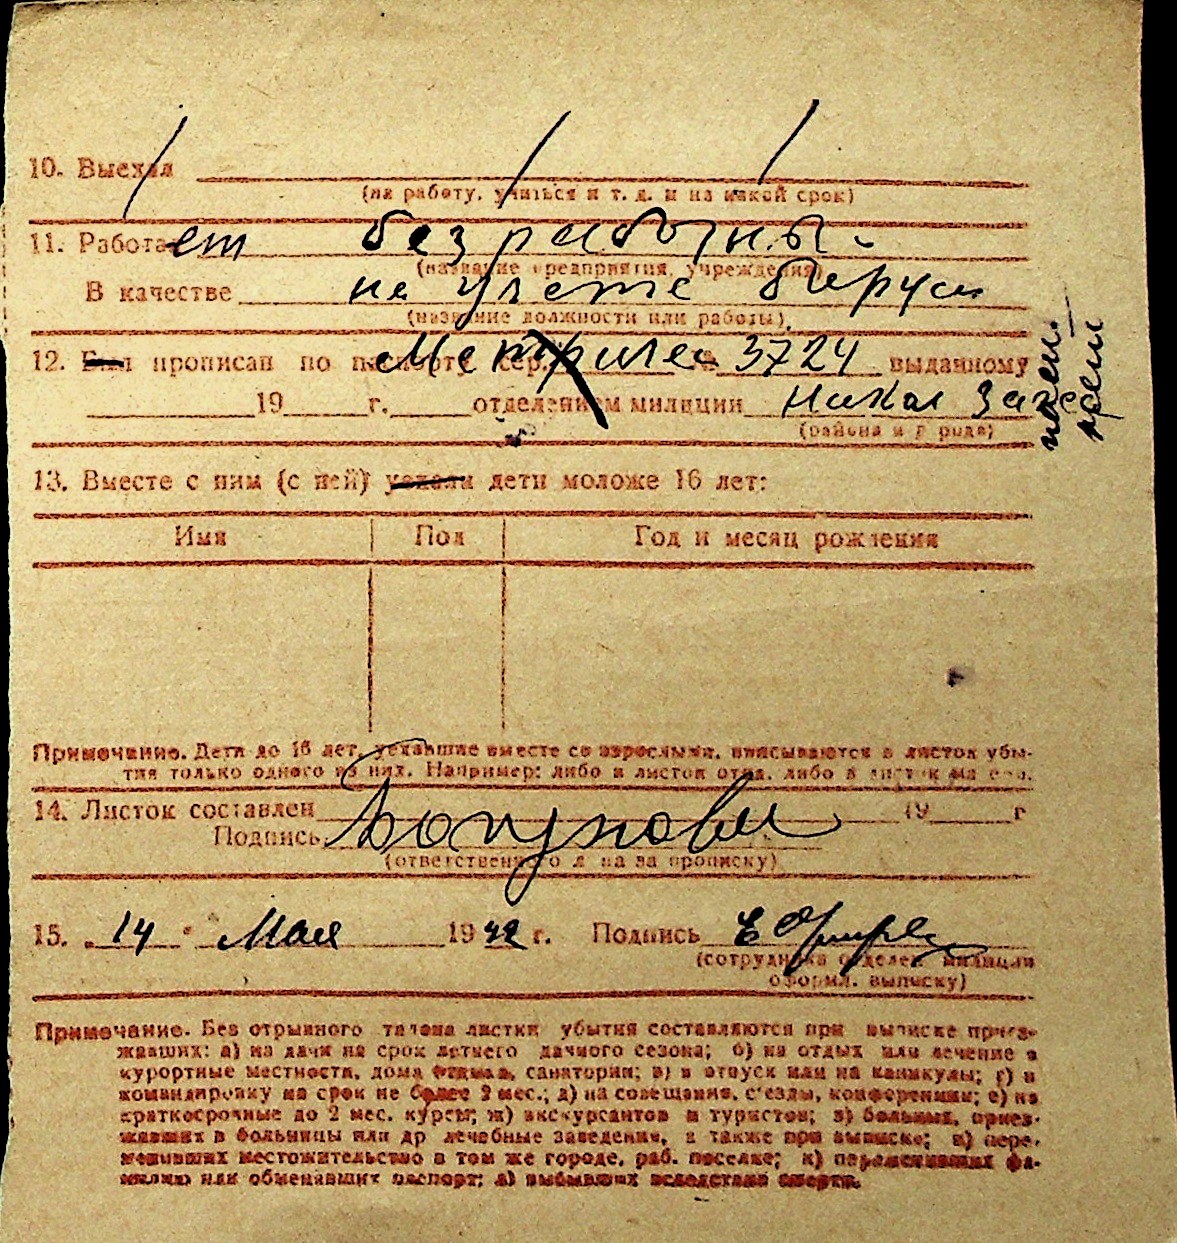 10. Выехал
(на работу, учиться и т. д. и на какой срок)
11. Работает безработный.
(название предприятия, учреждения)
В качестве на учете биржи
(название должности или работы)
12. Был прописан по паспорту сер. Метрике 3724 выданному
19 г. отделением милиции
(района и города)
13. Вместе с ним (с ней) уехали дети моложе 16 лет:
Имя Пол Год и месяц рождения
Примечание. Дети до 16 лет, уехавшие вместе со взрослыми, вписываются в листок убы-
тия только одного из них. Например: либо в листок отца, либо в листок матери.
14. Листок составлен 19 г
Подпись
(ответственного лица за прописку)
15. „14" Мая 1942 г. Подпись
(сотрудника отделен. милиции
оформ. выписку)
Примечание. Без отрывного талона листки убытия составляются при выписке приез-
жавших: а) на дачи на срок летнего дачного сезона; б) на отдых или лечение в
курортные местности, дома отдыха, санатории; в) в отпуск или на каникулы; г) в
командировку на срок не более 2 мес.; д) на совещания, с'езды, конференции; е) на
краткосрочные до 2 мес. курсы; ж) экскурсантов и туристов; з) больных, приез-
жавших в больницы или др лечебные заведения, а также при выписке; и) пере-
менивших местожительство в том же городе, раб. поселке; к) переменивших фа-
милию или обменявших паспорт; л) выбывших вследствие смерти.